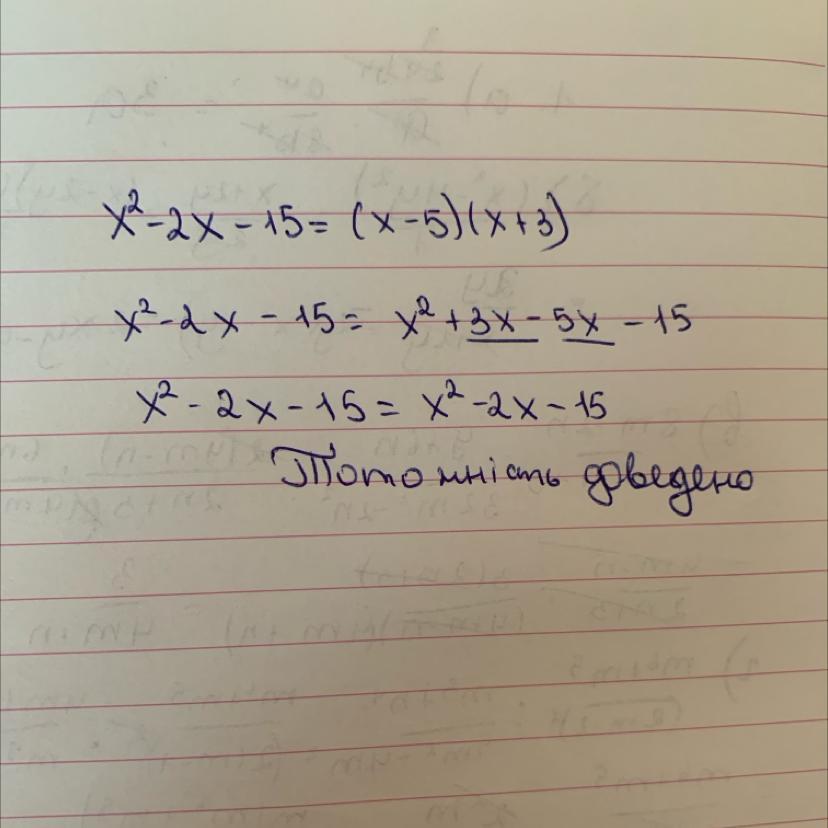 x² - 2x - 15 = (x - 5)(x + 3)
x² - 2x - 15 = x² + 3x - 5x - 15
x² - 2x - 15 = x² - 2x - 15
Тотожність доведено